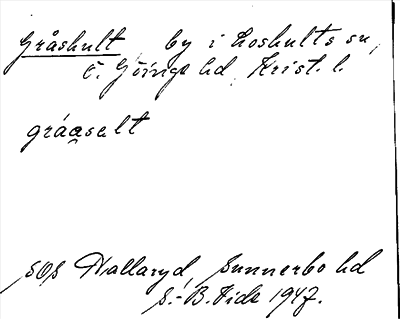 Gråshult by i Loshults sn,
Ö. Göinge hd, Krist. l.
gráaselt
sos Hallaryd, Sunnerbo hd
S.-B. Vide 1947.